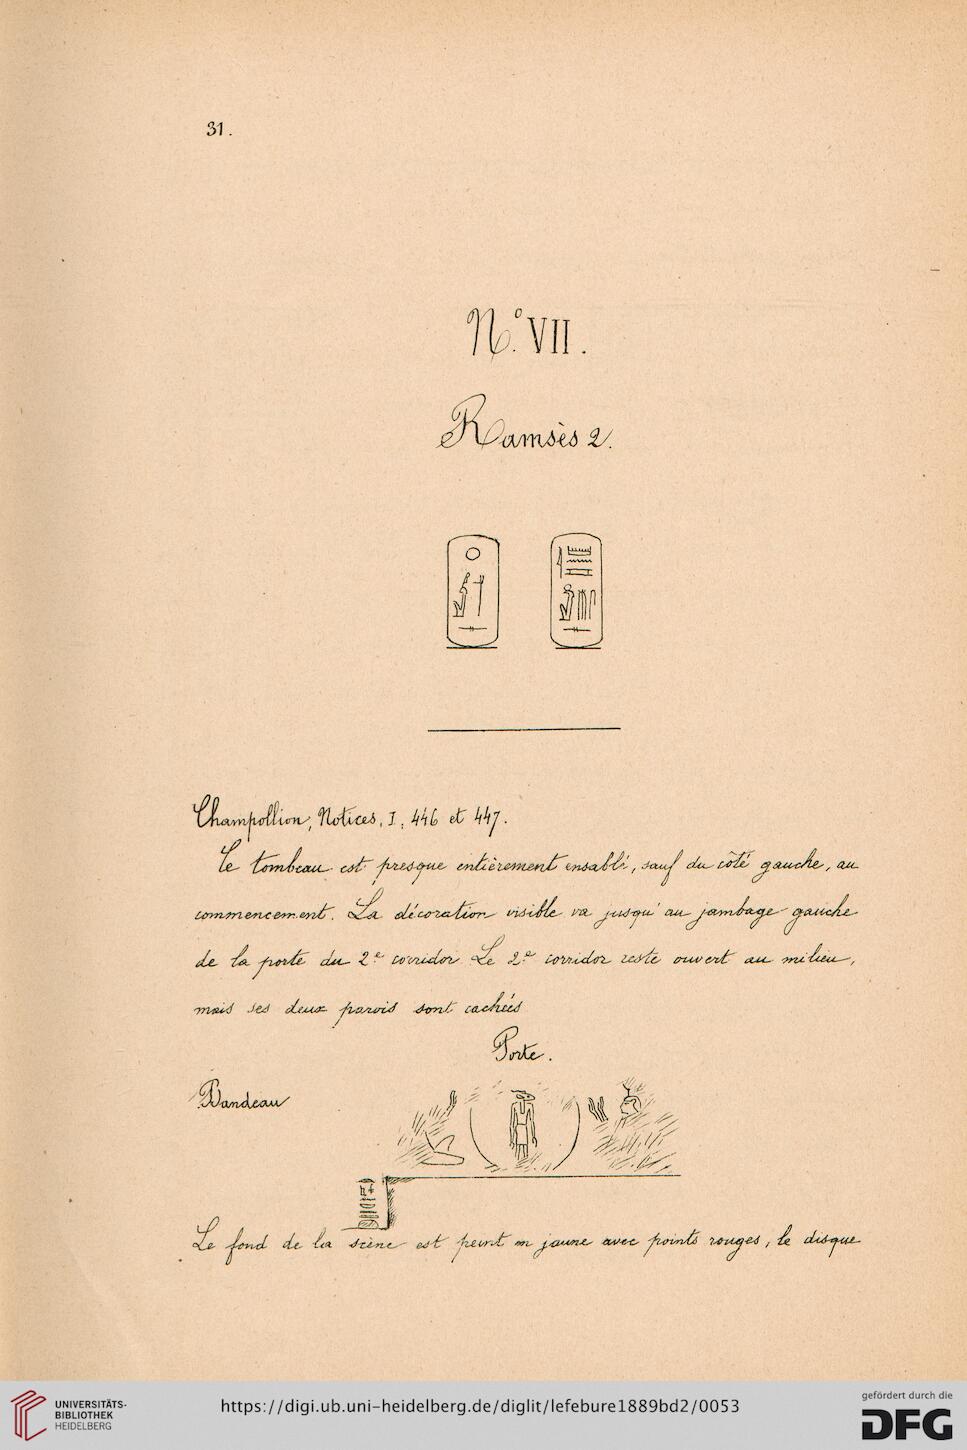 31.
N.º VII.
Ramsès 2.
Champollion, Notices, I, 446 et 447.
Le tombeau est presque entièrement ensablé, sauf du côté gauche, au
commencement. La décoration visible va jusqu'au jambage gauche
de la porte du 2.e corridor. Le 2.e corridor reste ouvert au milieu,
mais ses deux parois sont cachées
Porte.
Bandeau
Le fond de la scène est peint en jaune avec points rouges, le disque
UNIVERSITÄTS-
BIBLIOTHEK
HEIDELBERG
https://digi.ub.uni-heidelberg.de/diglit/lefebure1889bd2/0053
gefördert durch die
DFG